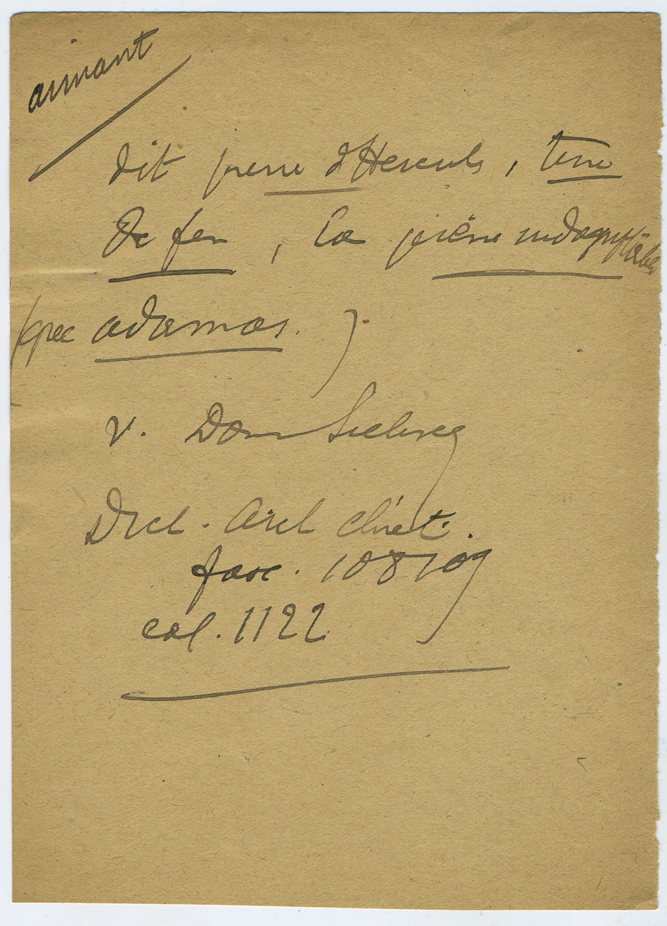 aimant
dit pierre d'Hercule, terre
de fer, la pierre
(grec adamas.)
v. Dom Leclercq
Dict. Arch chrét.
fasc. 108 109
col. 1122